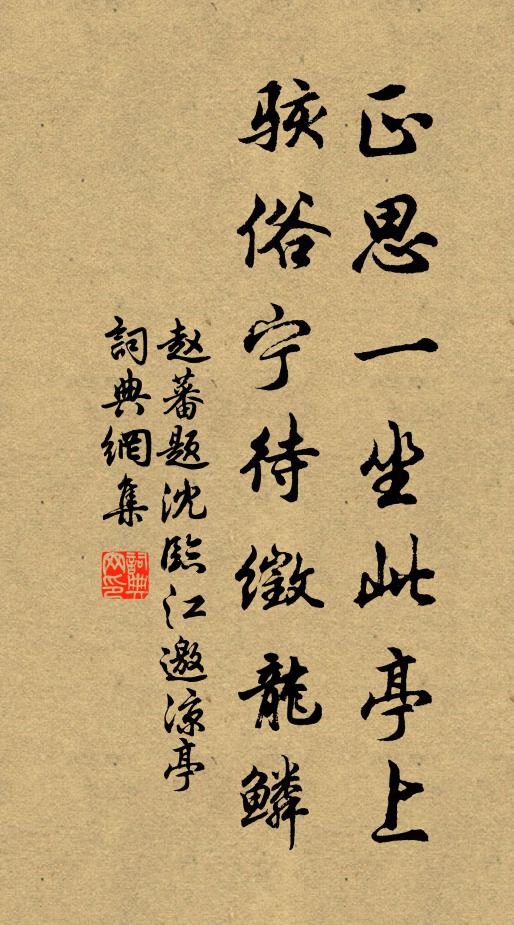 正思一坐此亭上
駭俗宁待徵龍鱗
赵蕃题沈臨江邀凉亭
詞典網集
詞典網印